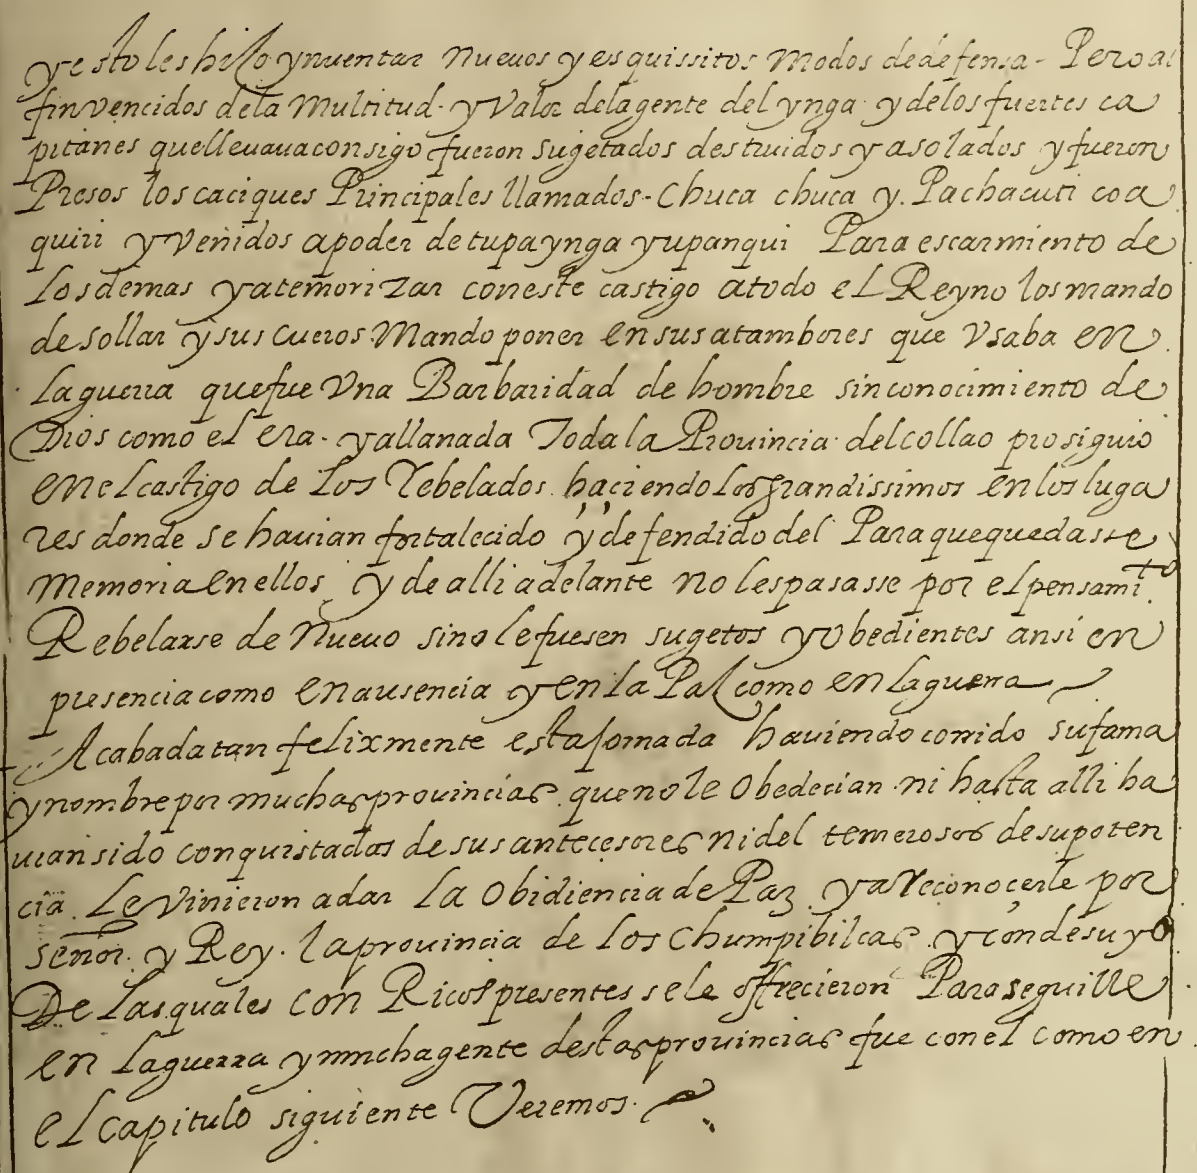 y esto les hizo ynuentar nueuos y esquissitos modos de defensa - Pero al
fin vencidos de la multitud y valor de la gente del ynga y de los fuertes ca
pitanes que lleuaua consigo fueron sugetados destruidos y asolados y fueron
Presos los caciques Principales llamados - chuca chuca y Pachacuti coa
quiri y venidos a poder de tupa ynga yupanqui Para escarmiento de
los demas y atemorizar con este castigo a todo el Reyno los mando
desollar y sus cueros mando poner en sus atambores que vsaba en
la guerra que fue vna Barbaridad de hombre sin conocimiento de
Dios como el era - y allanada Toda la Prouincia del collao prosiguio
en el castigo de los rebelados haciendolos grandissimos en los luga
res donde se hauian fortalecido y defendido del Para que quedasse
memoria en ellos y de alli adelante no les pasasse por el pensamito.
Rebelarse de nueuo sino le fuesen sugetos y obedientes ansi en
presencia como en ausencia y en la Paz como en la guerra
Acabada tan felixmente esta jornada hauiendo corrido su fama
y nombre por muchas prouincias que no le obedecian ni hasta alli ha
uian sido conquistadas de sus antecesores ni del temerosos de su poten
cia le vinieron a dar la obidiencia de Paz y a reconocerle por
señor y Rey. la prouincia de los chumpibilcas y condesuyo
De las quales con Ricos presentes se le offrecieron Para seguille
en la guerra y mucha gente destas prouincias fue con el como en
el capitulo siguiente Veremos.